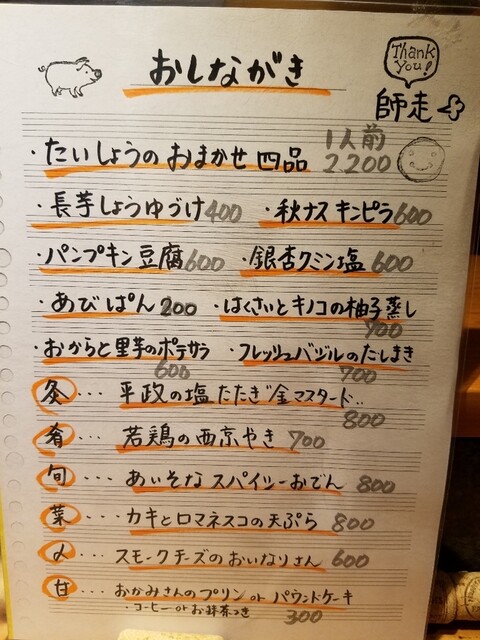 おしながき
Thank you!
師走
・たいしょうの おまかせ 四品 1人前 2.200
・長芋しょうゆづけ 400 ・秋ナス キンピラ 600
・パンプキン豆腐 600 ・銀杏クミン塩 600
・あびぱん 200 ・はくさいとキノコの柚子蒸し 700
・おからと里芋のポテサラ 600 ・フレッシュバジルのだしまき 700
灸 ・・・ 平政の塩たたき゛金マスタード‥ 800
肴 ・・・ 若鶏の西京やき 700
旬 ・・・ あいそな スパイシーおでん 800
菜 ・・・ カキとロマネスコの天ぷら 800
〆 ・・・ スモークチーズのおいなりさん 600
甘 ・・・ おかみさんのプリン or パウンドケーキ
・コーヒー or お抹茶つき 300